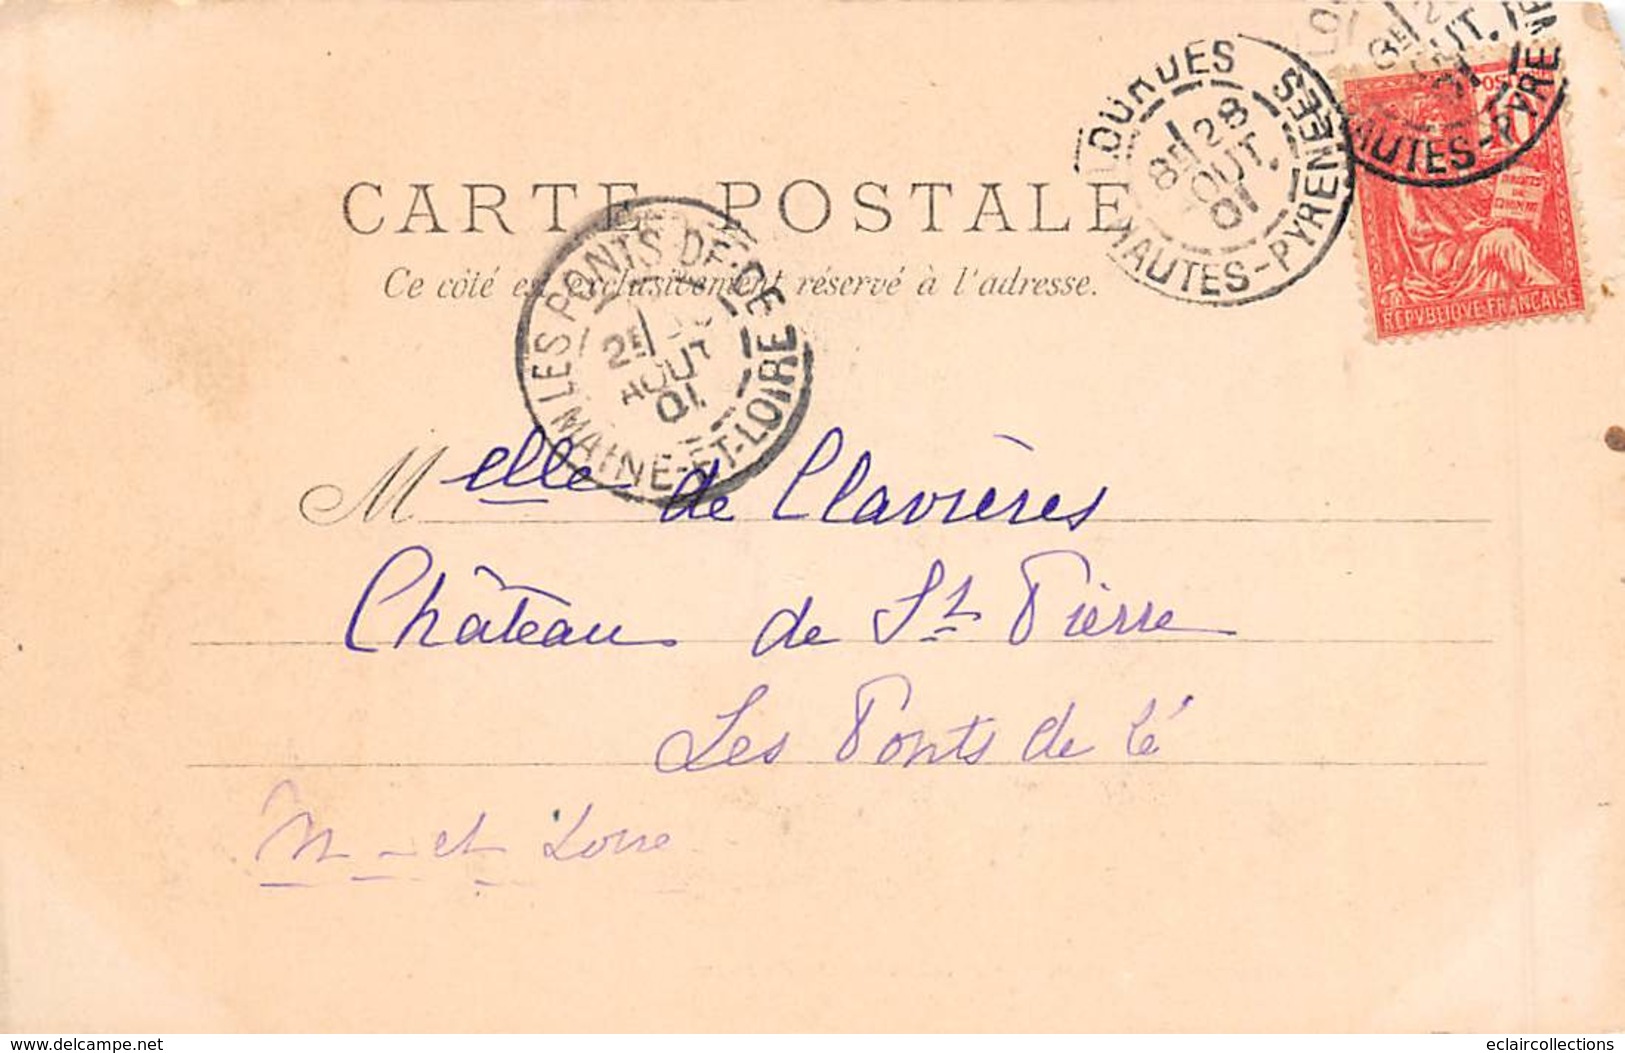 CARTE POSTALE
Ce côté est exclusivement réservé à l'adresse.
LOURDES
8E 28
AOUT.
01
HAUTES-PYRENEES
8E 2
OUT.
01
HAUTES-PYRENE
POS
DROITS
DE
L'HOMME
REPVBLIQVE·FRANÇAISE
LES PONTS-DE-CÉ
2E
AOUT
01
MAINE-ET-LOIRE
Melle de Clavières
Château de St Pierre
Les Ponts de Cé
M-et Loire
www.delcampe.net
eclaircollections